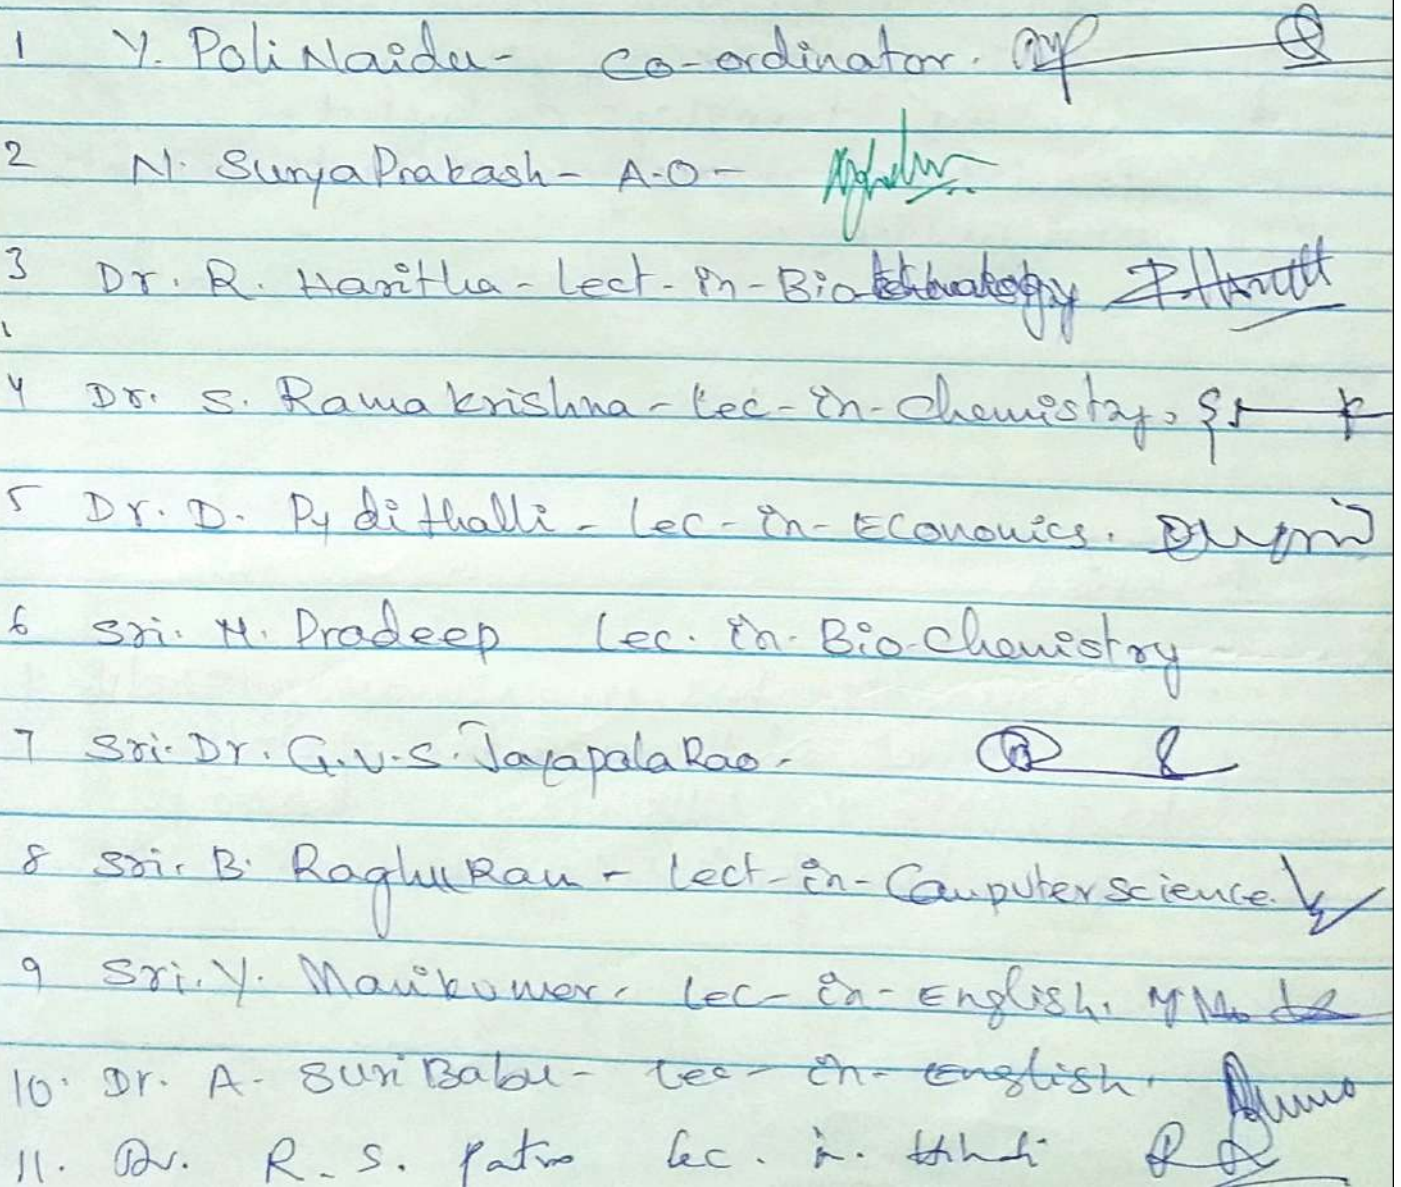 1 Y. PoliNaidu- Co-ordinator.
2 N. SuryaPrakash- A.O-
3 Dr. R. Haritha- Lect- in- Bio
4 Dr. S. Ramakrishna- Lec- in- Chemistry.
5 Dr. D. Pydithalli- Lec- in- Economics.
6 Sri. M. Pradeep Lec. in. Bio-Chemistry
7 Sri. Dr. G.V.S. JayapalaRao-
8 Sri. B. RaghuRam- Lect- in- Computer science.
9 Sri. Y. Manikumar. Lec- in- English.
10. Dr. A. SuriBabu- Lec- in- English.
11. Dr. R. S. Patro Lec. in. Hindi